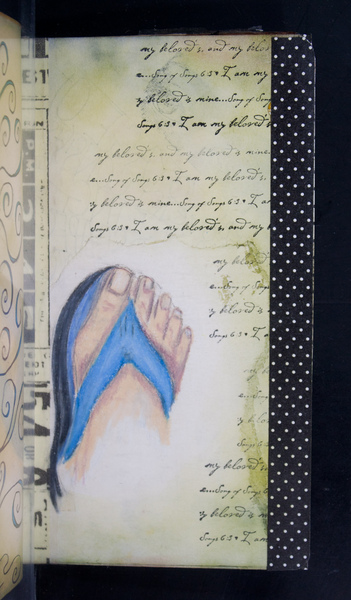 my beloved's, and my belov
e...Song of Songs 6:3 • I am my
y beloved is mine...Song of Song
Songs 6:3 • I am my beloved's
my beloved's, and my beloved is mine
e...Song of Songs 6:3 • I am my beloved's, an
y beloved is mine...Song of Songs 6:3 • I am
Songs 6:3 • I am my beloved's, and my b
my belove
e...Song of S
y beloved i
Songs 6:3 • I
my b
e...So
y belo
Songs 6:3
my beloved's
e...Song of Songs 6
y beloved is min
Songs 6:3 • I am
P.M